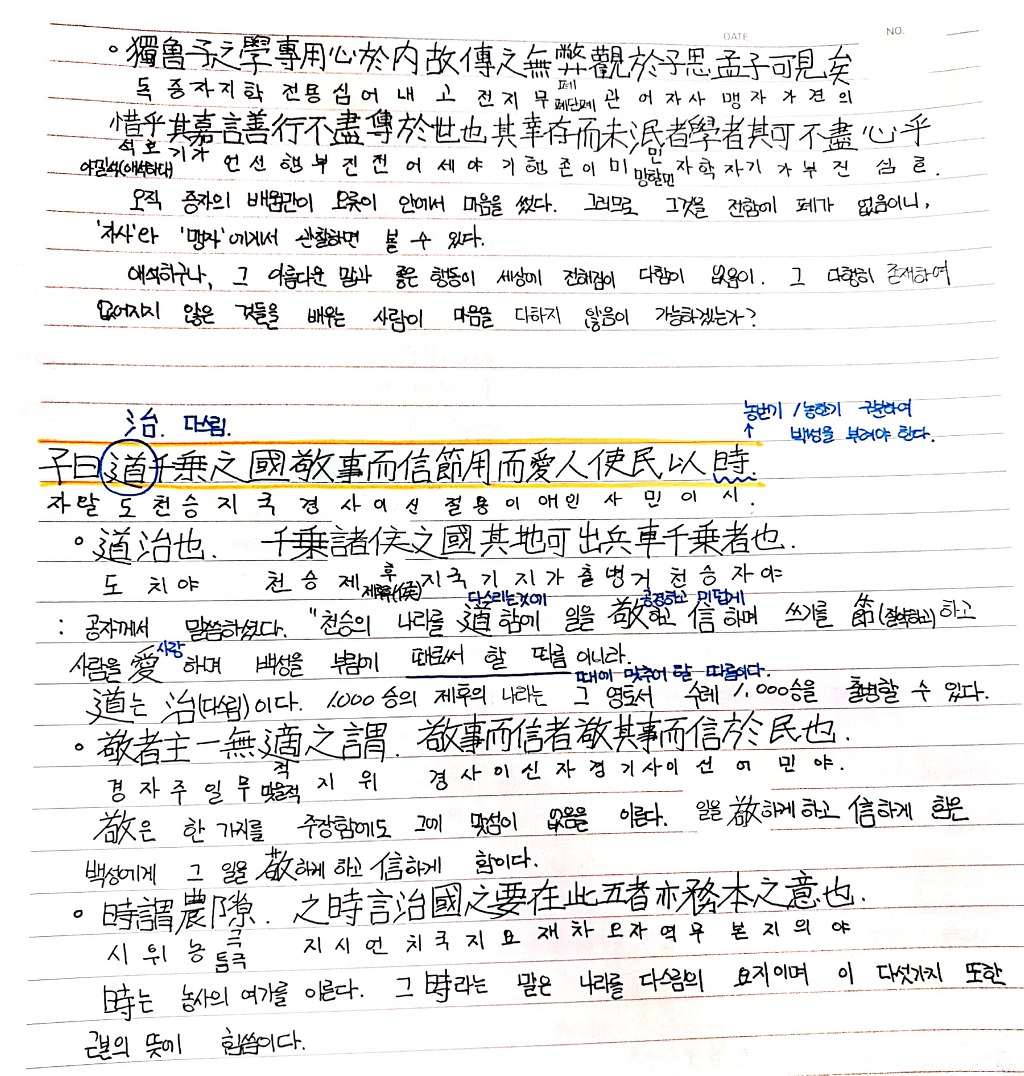 DATE NO.
◦ 獨魯子之學專用心於内故傳之無弊觀於子思孟子可見矣
독 증 자 지 학 전 용 심 어 내 고 전 지 무 폐 관 어 자 사 맹 자 가 견 의
폐단폐
惜乎其嘉言善行不盡傳於世也其幸存而未泯者學者其可不盡心乎
석 호 기 가 언 선 행 부 진 전 어 세 야 기 행 존 이 미 민 자 학 자 기 가 부 진 심 호.
아낄석(애석하다) 망할민
오직 증자의 배움만이 오롯이 안에서 마음을 썼다. 그러므로 그것을 전함에 폐가 없음이니,
'자사'와 '맹자'에게서 관찰하면 볼 수 있다.
애석하구나, 그 아름다운 말과 좋은 행동이 세상에 전해짐이 다함이 없음이. 그 다행히 존재하여
없어지지 않은 것들을 배우는 사람이 마음을 다하지 않음이 가능하겠는가?
治. 다스림.
농번기 / 농한기 구분하여
↑ 백성을 부려야 한다.
子曰道千乗之國敬事而信節用而愛人使民以時.
자 왈 도 천 승 지 국 경 사 이 신 절 용 이 애 인 사 민 이 시.
◦ 道治也. 千乗諸侯之國其地可出兵車千乗者也.
도 치 야 천 승 제 후 지 국 기 지 가 출 병 거 천 승 자 야
제후(侯)
다스리는것에 공경하고 미덥게
: 공자께서 말씀하셨다. "천승의 나리를 道함에 일을 敬하고 信하며 쓰기를 節(절약하고)하고
사랑
사람을 愛하며 백성을 부림에 때로써 할 따름이니라.
때에 맞추어 할 따름이다.
道는 治(다스림)이다. 1,000 승의 제후의 나라는 그 영토서 수레 1,000승을 출병할 수 있다.
◦ 敬者主一無適之謂. 敬事而信者敬其事而信於民也.
경 자 주 일 무 적 지 위 경 사 이 신 자 경 기 사 이 신 어 민 야.
맞을적
敬은 한 가지를 주장함에도 그에 맞섬이 없음을 이른다. 일을 敬하게 하고 信하게 함은
백성에게 그 일을 敬하게 하고 信하게 함이다.
◦ 時謂農隙. 之時言治國之要在此五者亦務本之意也.
시 위 농 극 지 시 언 치 국 지 요 재 차 오 자 역 무 본 지 의 야
틈극
時는 농사의 여가를 이른다. 그 時라는 말은 나리를 다스림의 요지이며 이 다섯가지 또한
근본의 뜻에 힘씀이다.